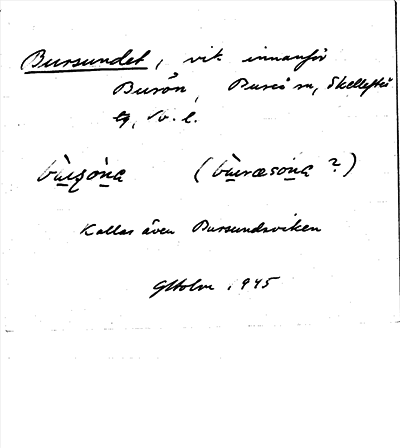 Bursundet, vik innanför
Burön, Bureå sn, Skellefteå
lfs, Vb. l.
bùrsóna (bùuræsóna ?)
Kallas även Bursundsviken
GHolm 1945